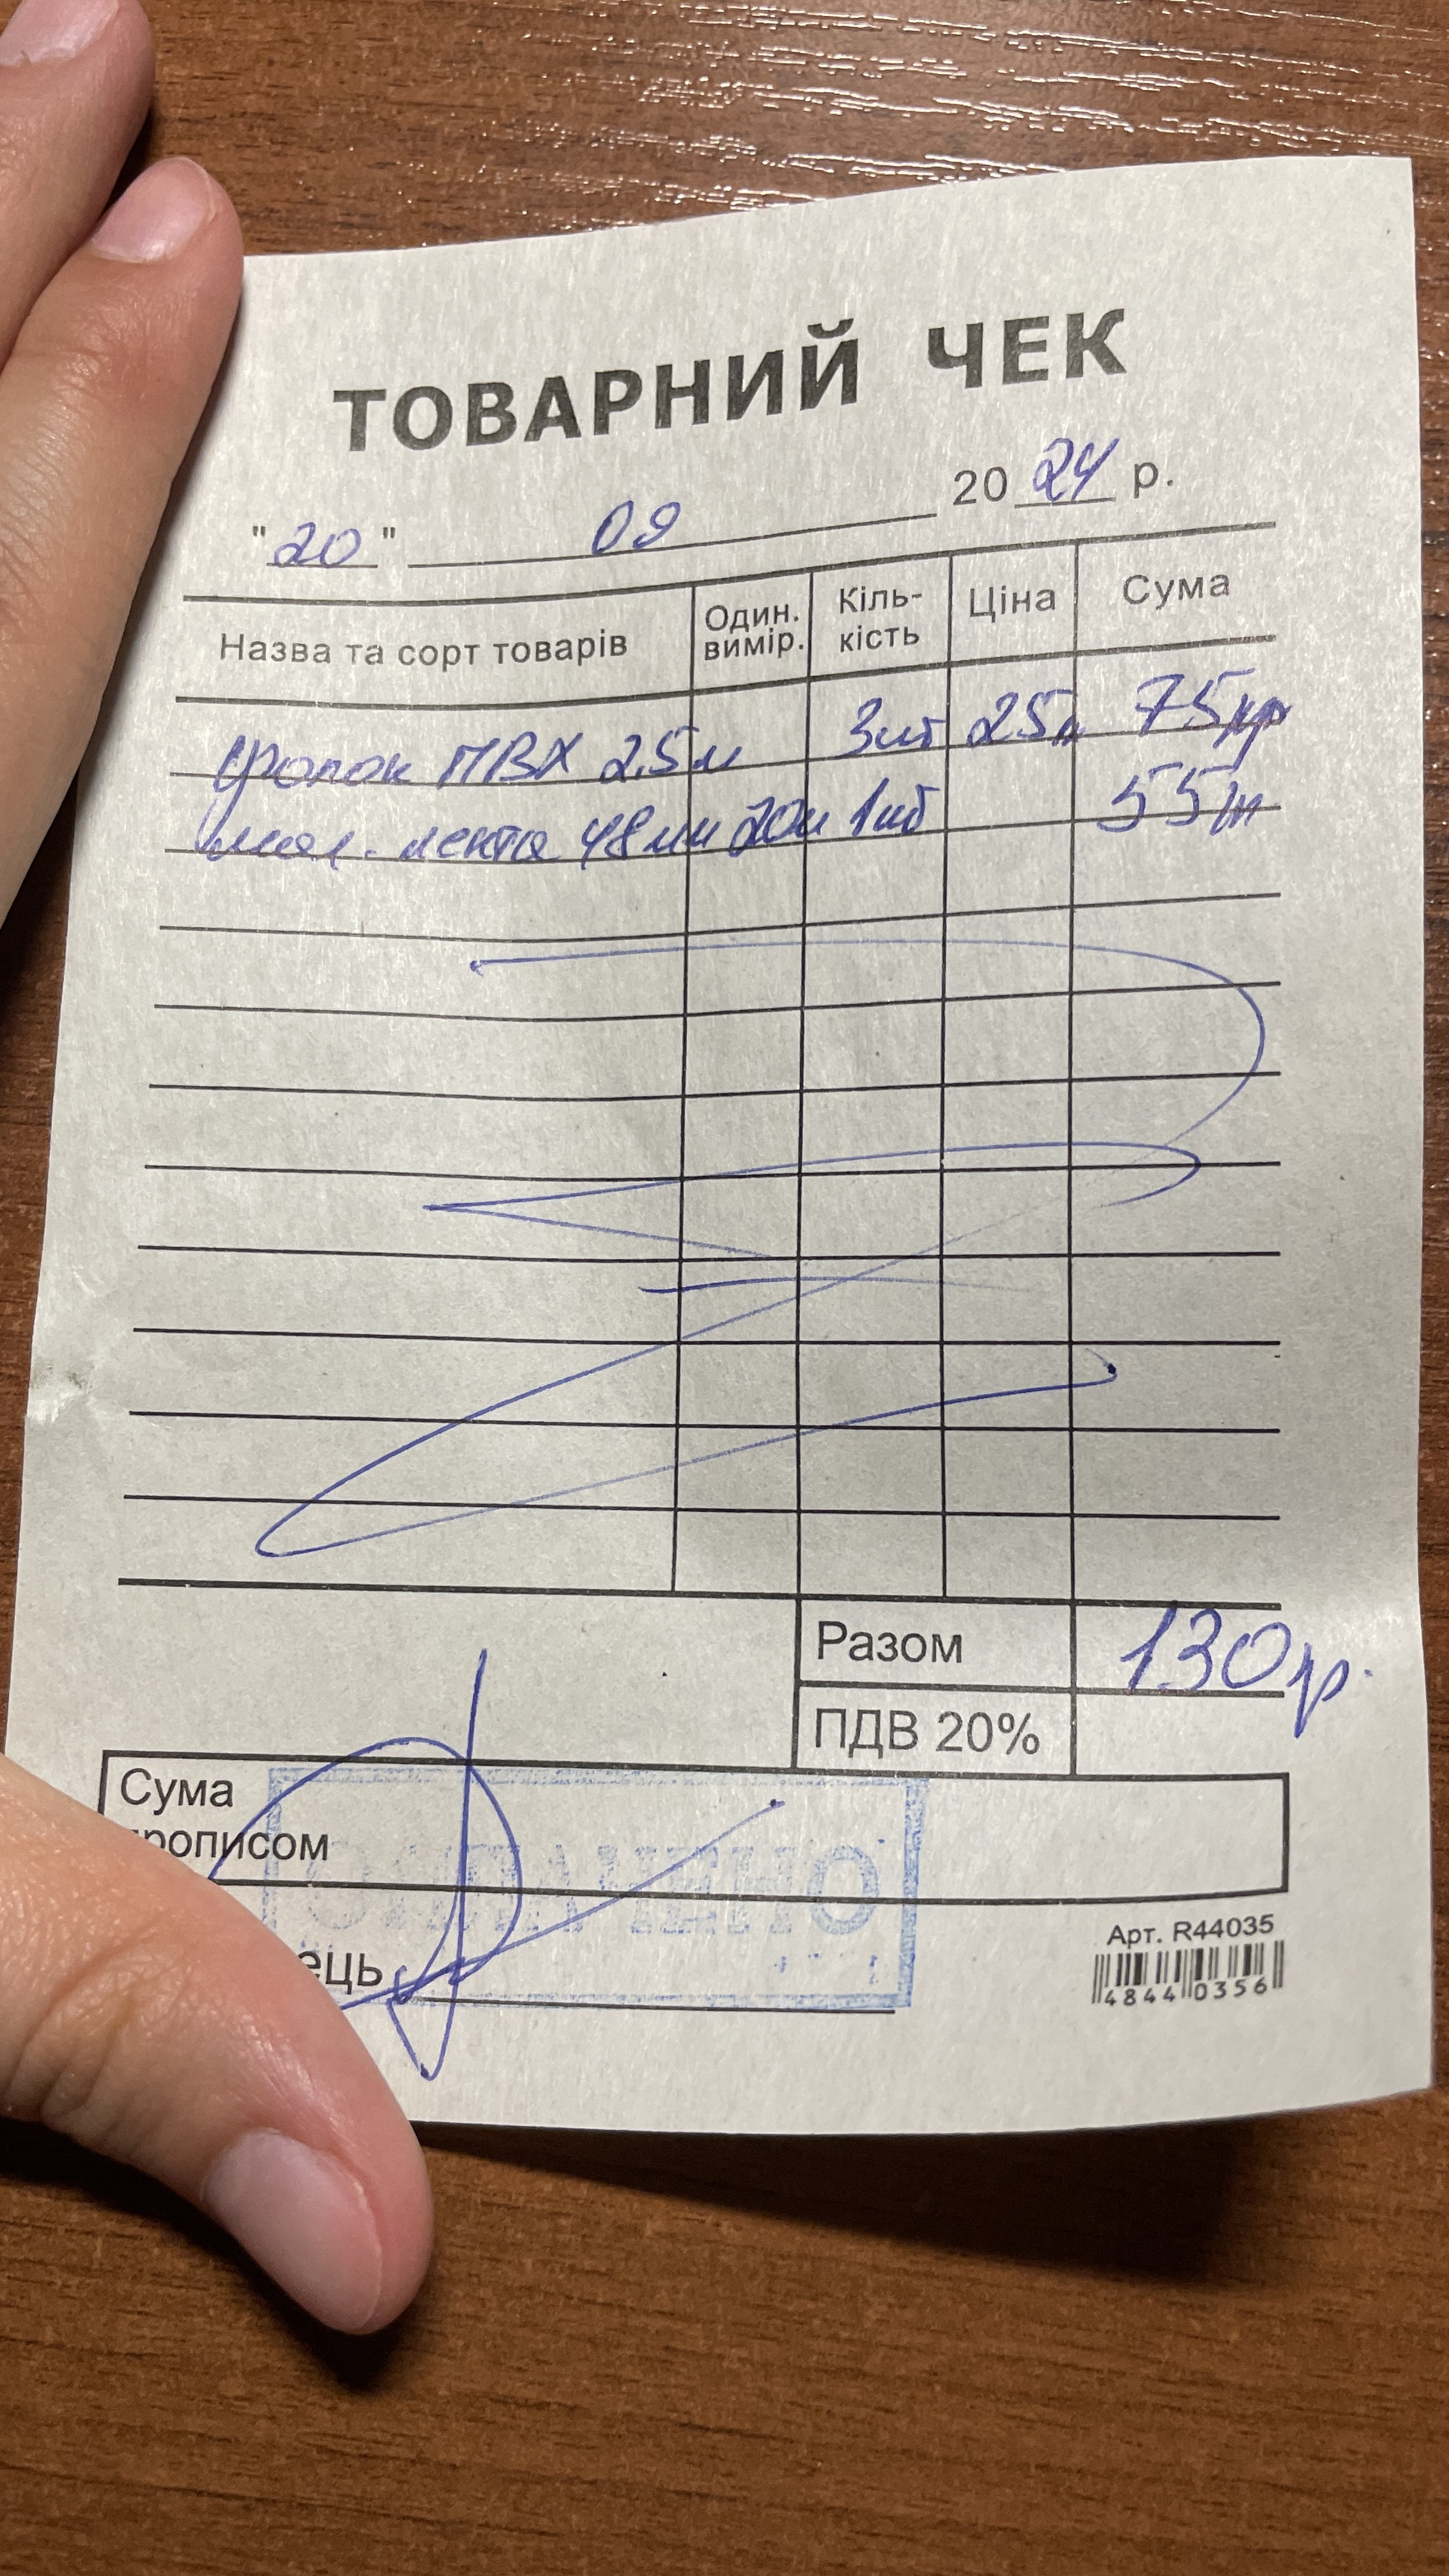 ТОВАРНИЙ ЧЕК
"20" 09 2024 р.
Назва та сорт товарів Один. вимір. Кіль-кість Ціна Сума
ПВХ 2,5м 3шт 25 75гр
мал. лента 48мм 20м 1шт 55гр
Разом 130гр.
ПДВ 20%
Сума
прописом
ець
ОПЛАЧЕНО
Арт. R44035
48440356